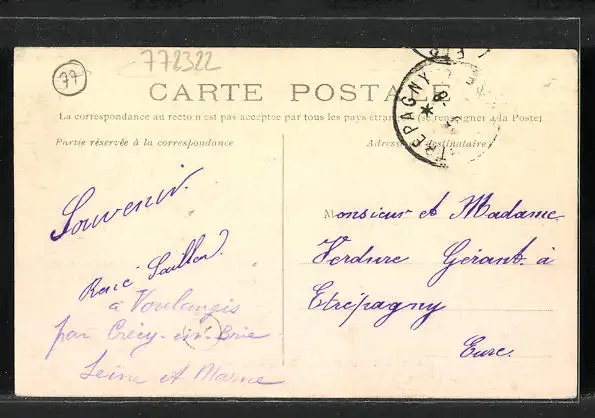 77
772322
CARTE POSTALE
La correspondance au recto n'est pas acceptée par tous les pays étrangers (se renseigner à la Poste)
Partie réservée à la correspondance
Adresse du destinataire
TREPAGNY
Souvenir.
René
à Voulangis
par Crécy-en-Brie
Seine et Marne
Monsieur et Madame
Verdure Gérant à
Etrépagny
Eure.